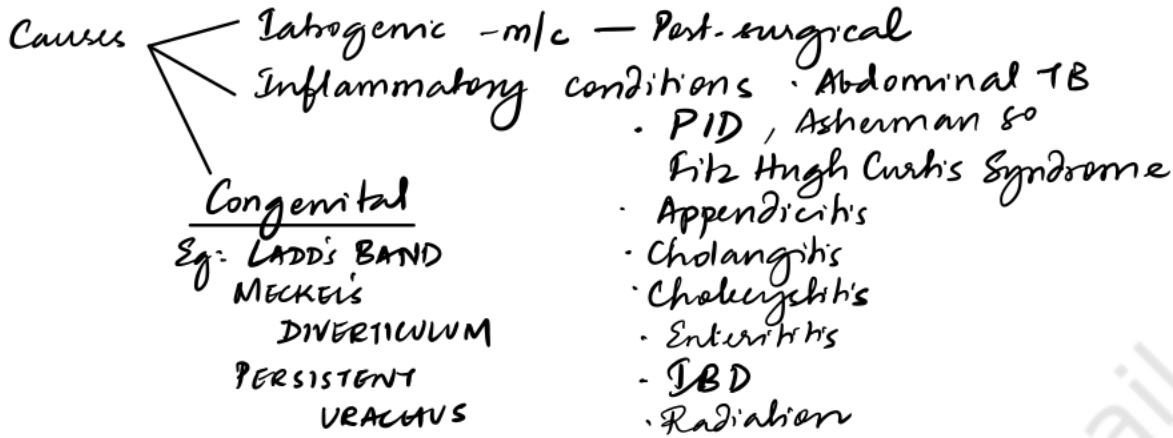 Causes
Iatrogenic - m/c — Post-surgical
Inflammatory conditions · Abdominal TB
· PID , Asherman so
Fitz Hugh Curtis Syndrome
· Appendicitis
· Cholangitis
· Cholecystitis
· Enterititis
- IBD
· Radiation
Congenital
Eg: LADD's BAND
MECKEL'S
DIVERTICULUM
PERSISTENT
URACHUS